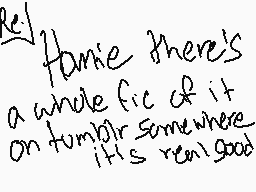 Re:
Homie there's
a whole fic of it
on tumblr somewhere
it's real good